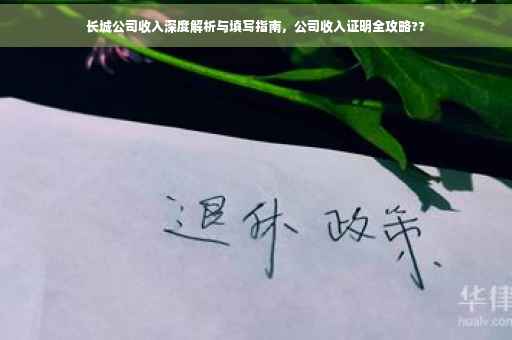 长城公司收入深度解析与填写指南，公司收入证明全攻略??
退休 政策
华律
hualv.com